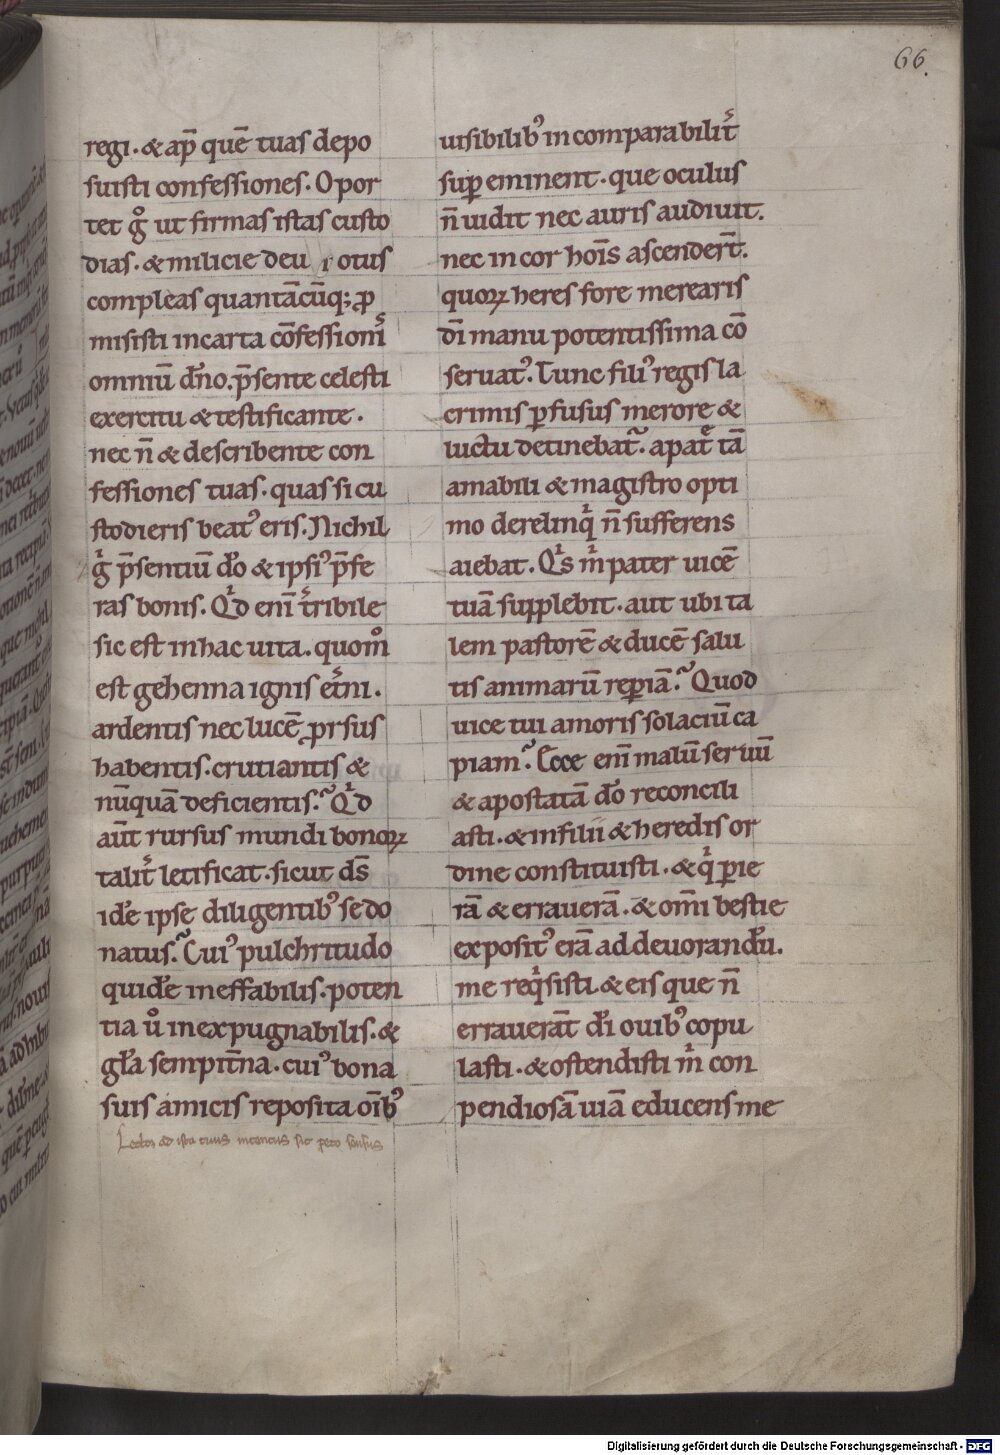 66.
regi. & ap̄ quē tuas depo
suisti confessiones. Opor
tet gͦ ut firmas istas custo
dias. & milicie deu otus
compleas quantācūq; ꝓ
misisti in carta cōfessionis
omniū dn̄o. p̄sente celesti
exercitu & testificante.
nec n̄ & describente con
fessiones tuas. quas si cu
stodieris beatꝰ eris. Nichil
gͥ p̄sentiū do̅ & ipsiꝰ p̄fe
ras bonis. Qͥd eni̅ t̅ribile
sic est in hac uita. quomͦ
est gehenna ignis et̅ni.
ardentis nec lucē ꝓrsus
habentis. crutiantis &
nūquā deficientis. Qͥd
aūt rursus mundi bonoꝝ
talit̅ letificat. sicut ds̄
ide̅ ipse diligentibꝰ se do
natus. Cuiꝰ pulchritudo
quide̅ ineffabilis. poten
tia uͦ inexpugnabilis. &
gl̅a sempit̅na. cuiꝰ bona
suis amicis reposita oīb
Lector ad ista tuus intentus sit peto sensus
uisibilibꝰ incomparabilit̅
suꝑ eminent. que oculus
n̄ uidit nec auris audiuit.
nec in cor hoīs ascendert̅.
quoꝝ heres fore merearis
dī manu potentissima cō
seruatꝰ. Tunc filiꝰ regis la
crimis ꝑfusus merore &
luctu detinebat̃. a pat̅ tā
amabili & magistro opti
mo derelinqͥ n̄ sufferens
aiebat. Qͥs mͥ pater uicē
tuā supplebit. aut ubi ta
lem pastorē & ducē salu
tis animarū reꝑiā. Quod
uice tui amoris solaciū ca
piam. Ecce eni̅ malū seruū
& apostatā do̅ reconcili
asti. & in filii & heredis or
dine constituisti. & qͥ ꝑie
rā & errauerā. & om̄i bestie
expositꝰ erā ad deuorandu̅.
me reqͥsisti. & eis que n̄
errauerāt di̅ ouibꝰ copu
lasti. & ostendisti mͥ con
pendiosā uiā educens me
Digitalisierung gefördert durch die Deutsche Forschungsgemeinschaft - DFG